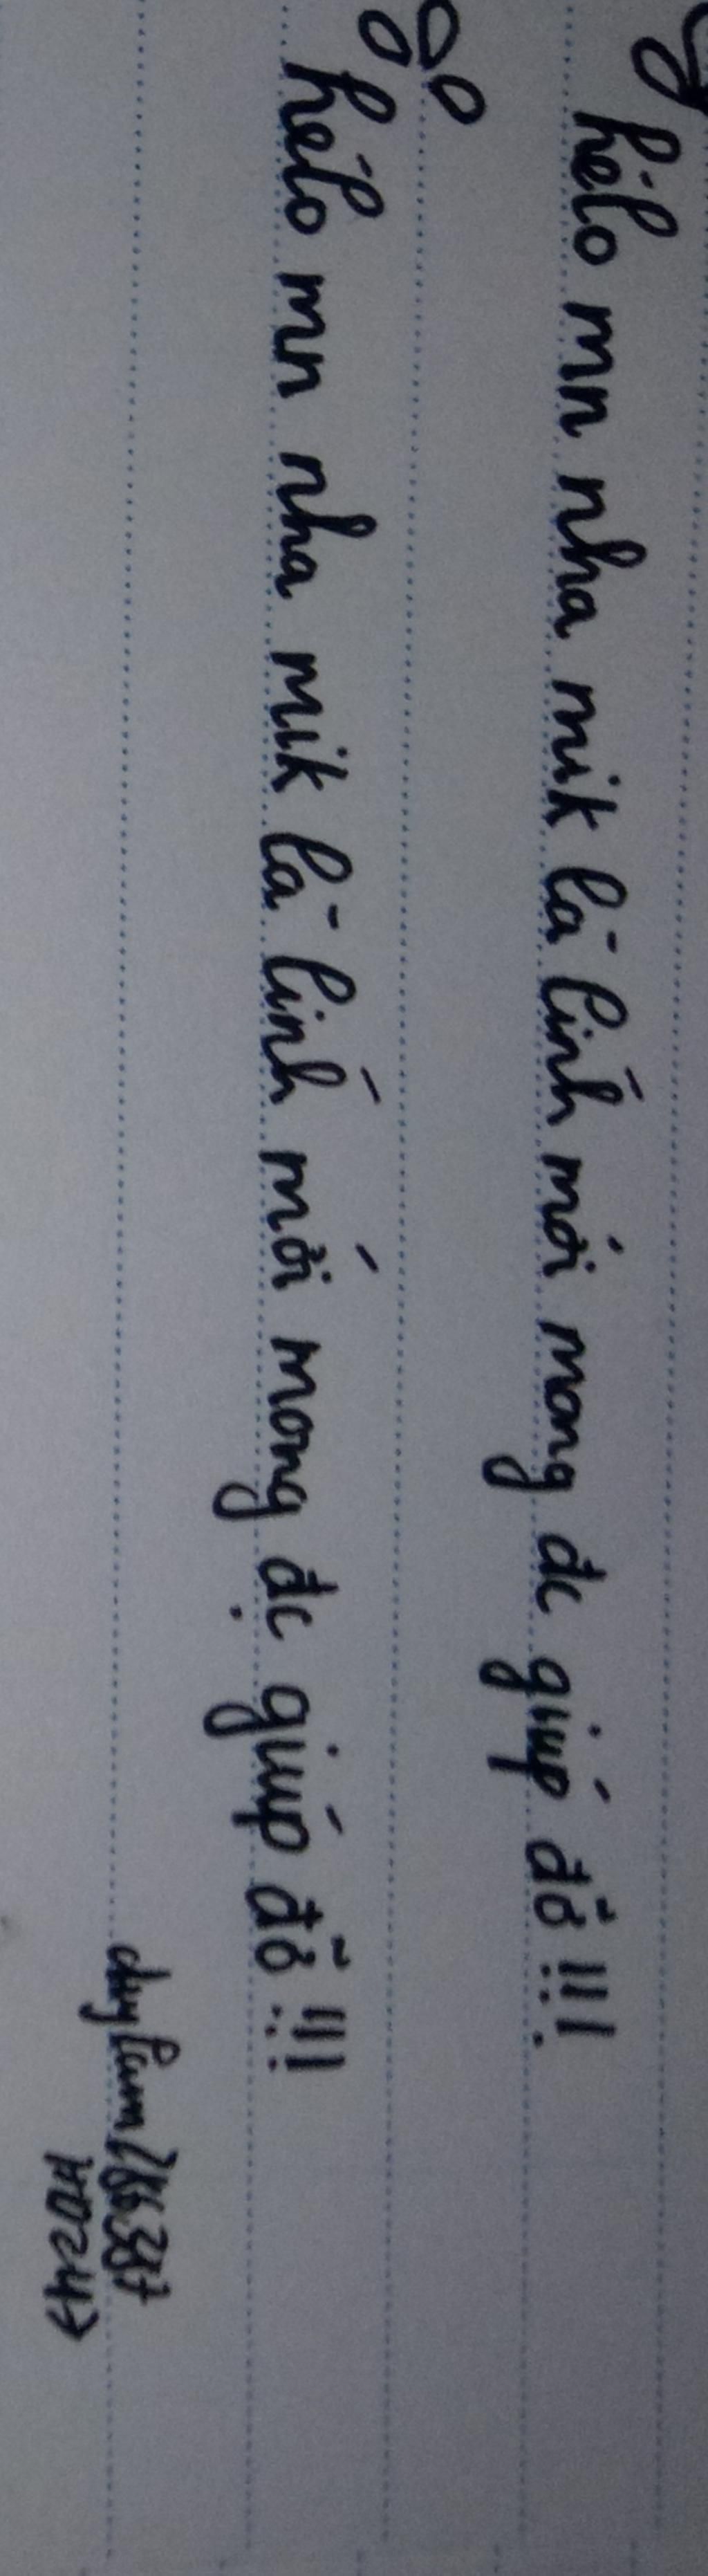 hélo mn nha mik là lính mới mong đc giúp đỡ !!!
hélo mn nha mik là lính mới mong đc giúp đỡ !!!
140247